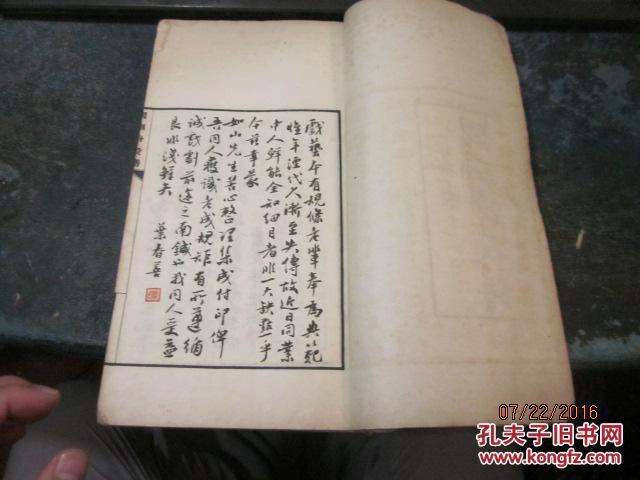 戲藝今有規條老輩奉為典範
惟年湮代久漸至失傳故近日同業
中人鮮能全知細目者非一大缺點乎
今茲幸蒙
如山先生苦心整理集成付印俾
吾同人獲識老成規矩有所遵循
誠戲劇前途之南鍼而我同人受益
良非淺鮮矣
葉春善
07/22/2016
孔夫子旧书网
www.kongfz.com